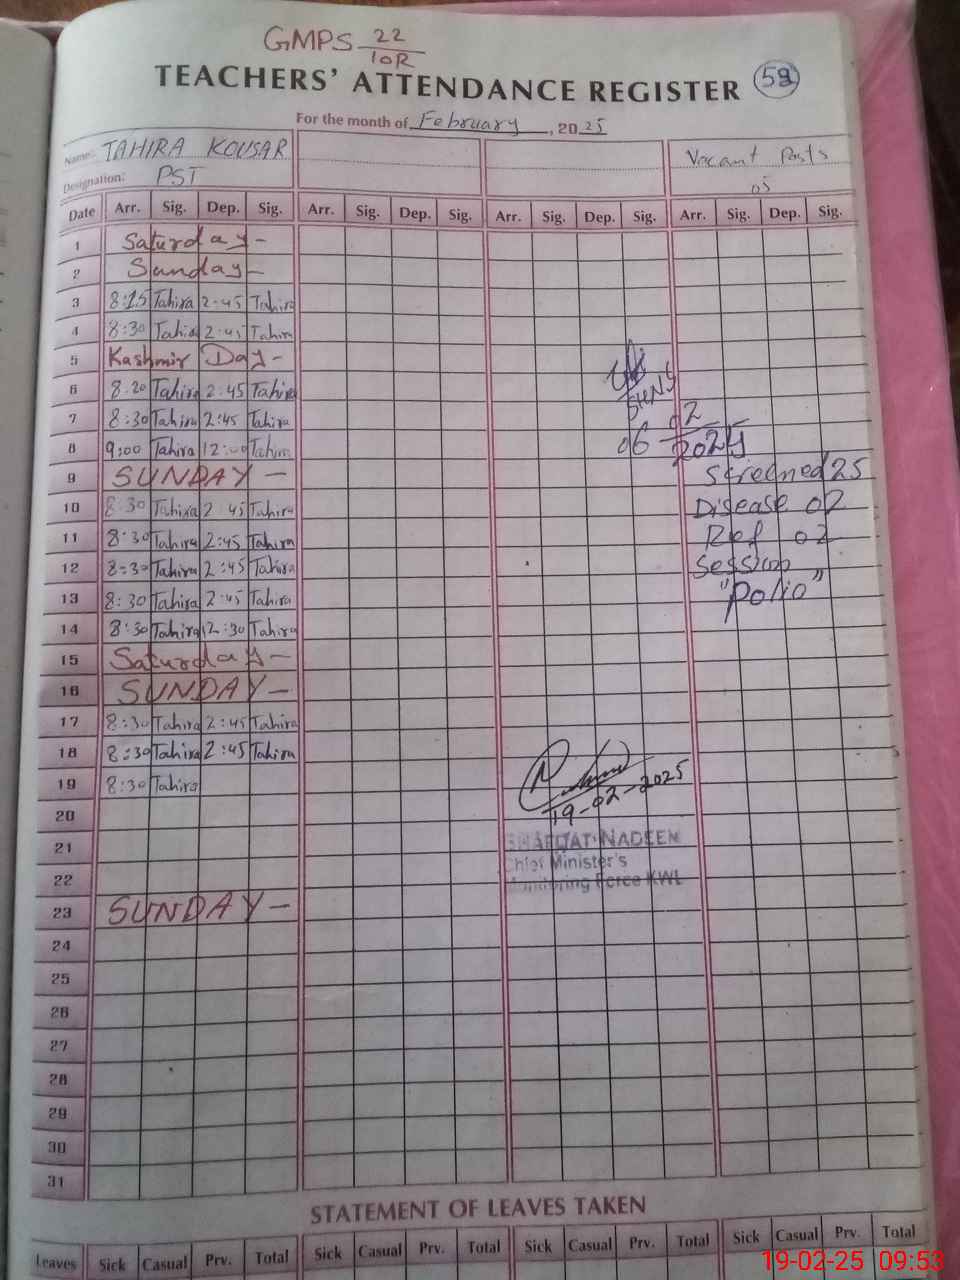 GMPS 22/10R
TEACHERS' ATTENDANCE REGISTER
For the month of February, 2025
Name: TAHIRA KOUSAR Vacant Posts
Designation: PST 05
Date Arr. Sig. Dep. Sig. Arr. Sig. Dep. Sig. Arr. Sig. Dep. Sig. Arr. Sig. Dep. Sig.
1 Saturday -
2 Sunday -
3 8:25 Tahira 2:45 Tahira
4 8:30 Tahira 2:45 Tahira
5 Kashmir Day -
6 8:20 Tahira 2:45 Tahira
SHNS
7 8:30 Tahira 2:45 Tahira
8 9:00 Tahira 12:00 Tahira 06 02/2025
9 SUNDAY - Screened 25
10 8:30 Tahira 2:45 Tahira Disease 02
11 8:30 Tahira 2:45 Tahira Ref 02
12 8:30 Tahira 2:45 Tahira Session
13 8:30 Tahira 2:45 Tahira "Polio"
14 8:30 Tahira 12:30 Tahira
15 Saturday -
16 SUNDAY -
17 8:30 Tahira 2:45 Tahira
18 8:30 Tahira 2:45 Tahira
19 8:30 Tahira 19-02-2025
20
21 NADEEM
22 Chief Minister's
Monitoring Force KWL
23 SUNDAY -
24
25
26
27
28
29
30
31
STATEMENT OF LEAVES TAKEN
Leaves Sick Casual Prv. Total Sick Casual Prv. Total Sick Casual Prv. Total Sick Casual Prv. Total
19-02-25 09:53